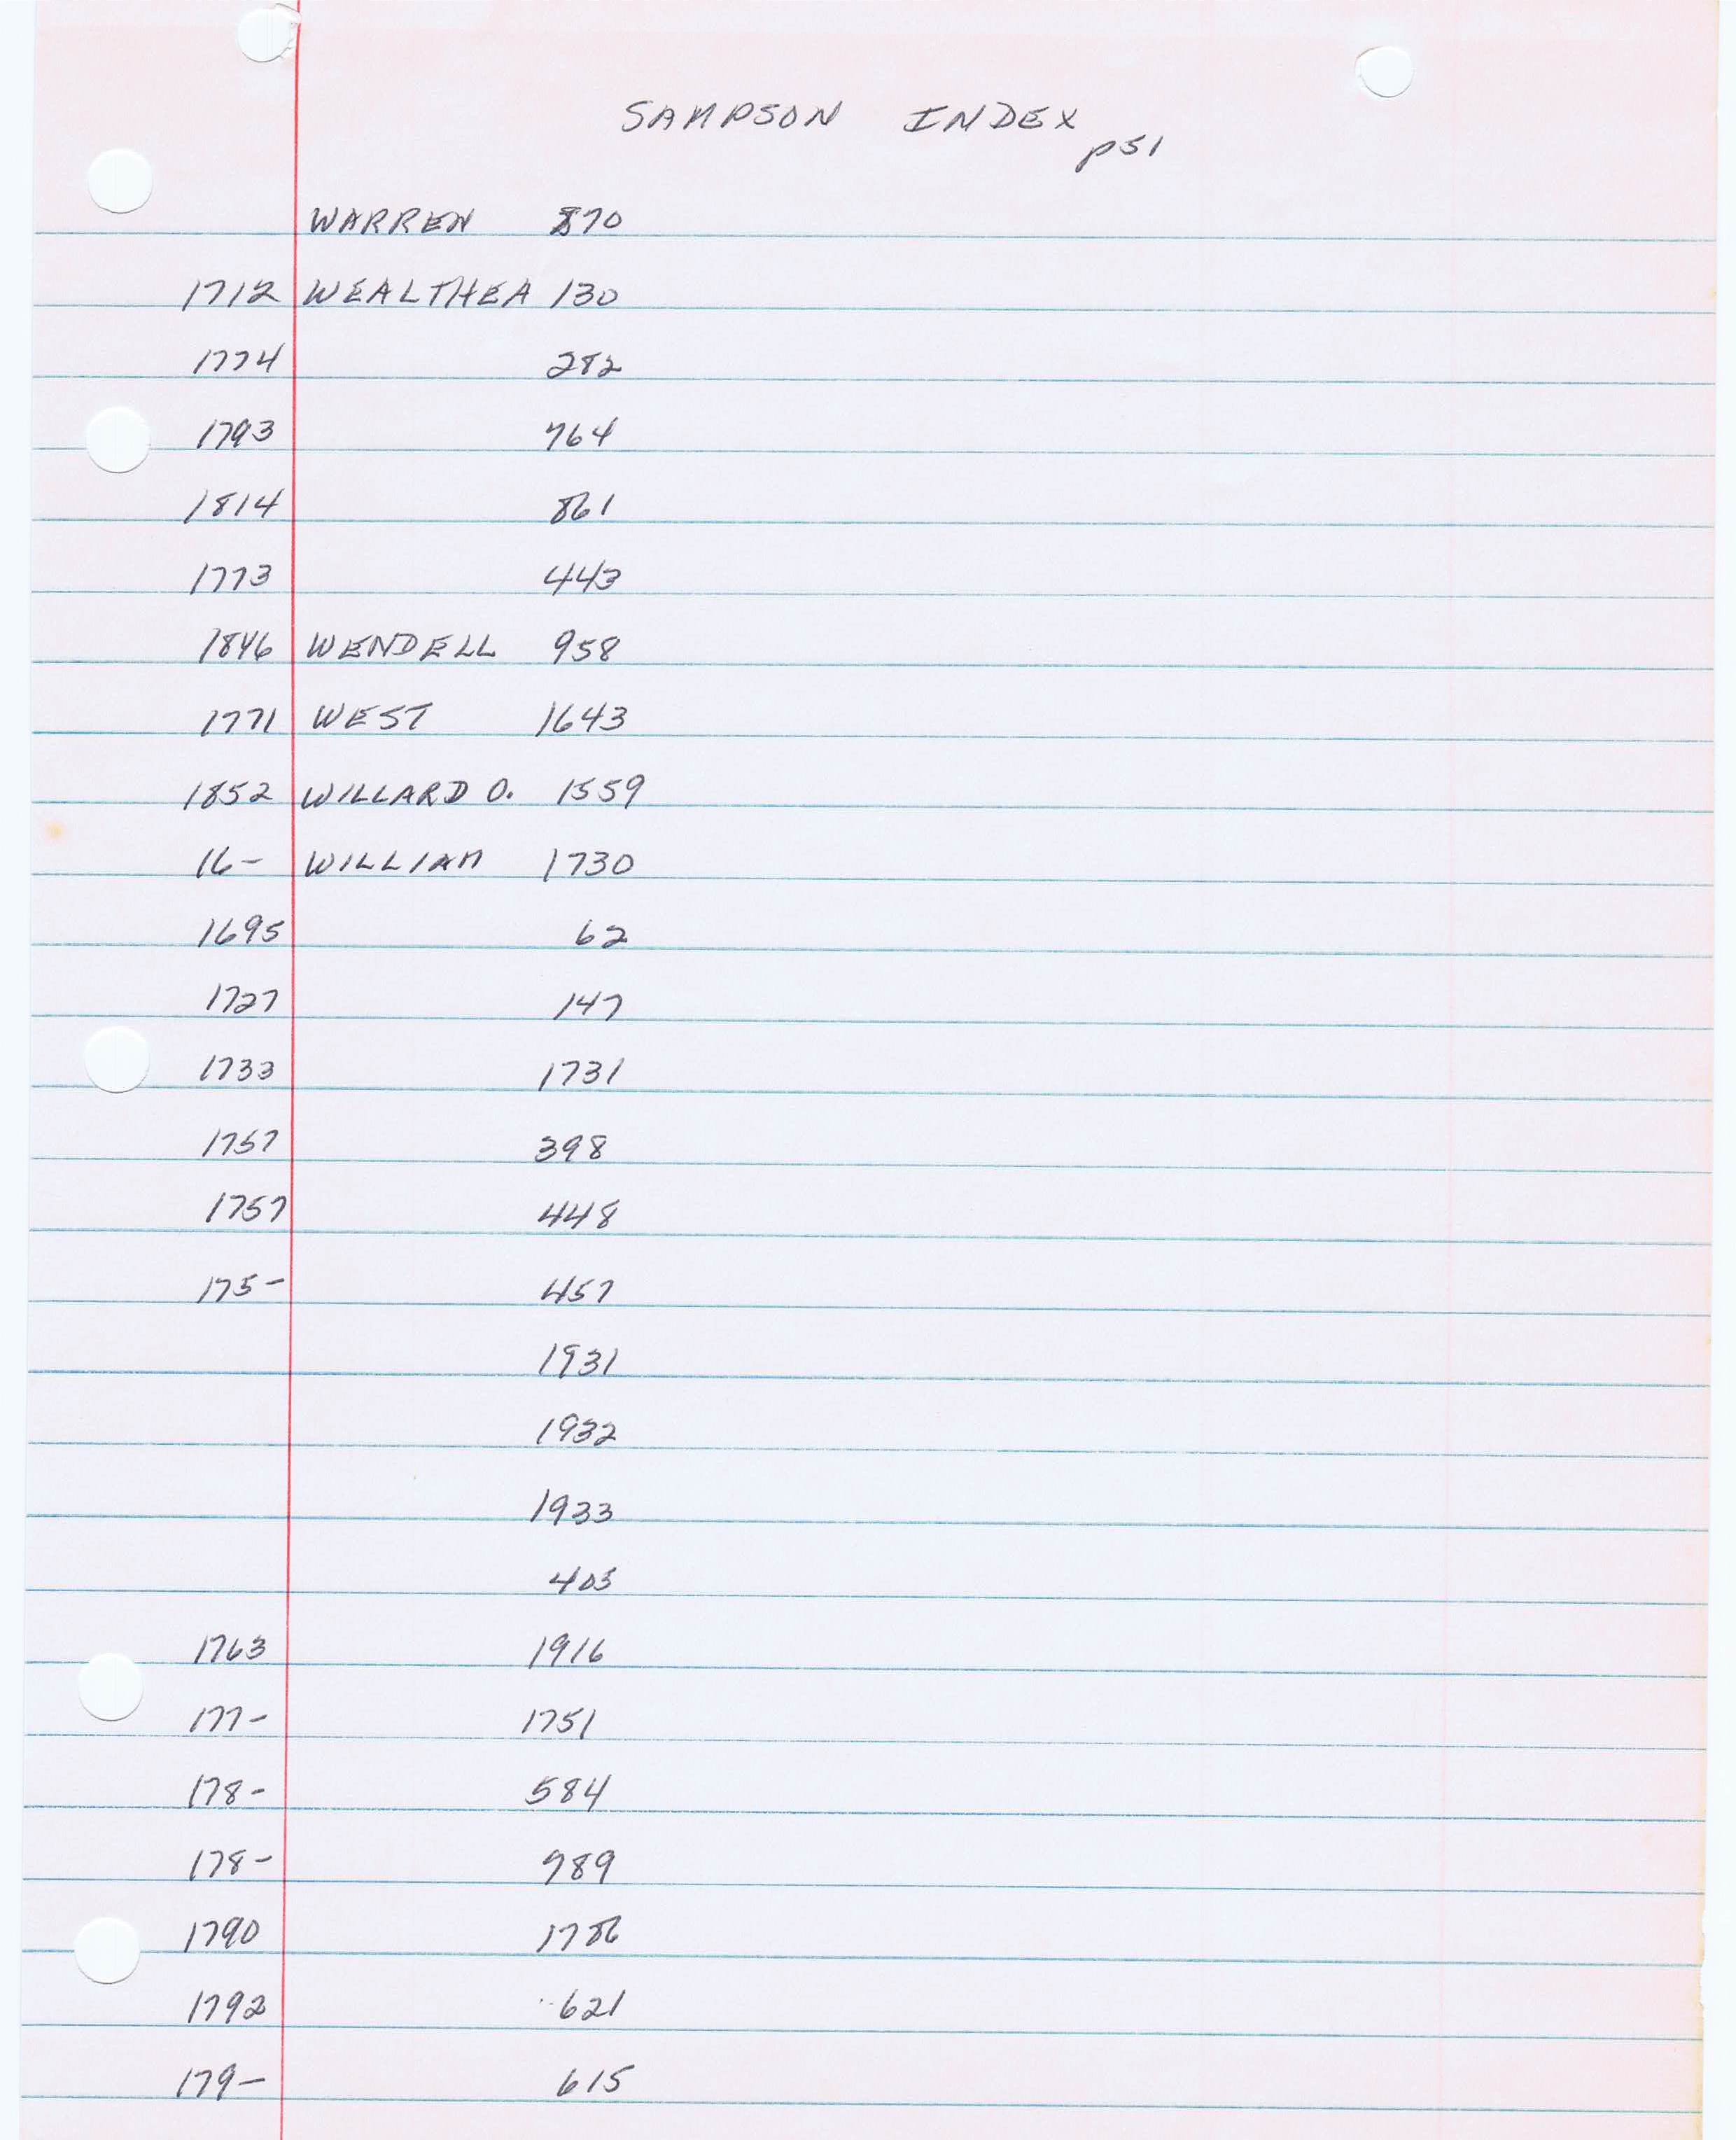 SAMPSON INDEX
p51
WARREN 870
1712 WEALTHEA 130
1774 282
1793 764
1814 861
1773 443
1846 WENDELL 958
1771 WEST 1643
1852 WILLARD O. 1559
16- WILLIAM 1730
1695 62
1727 147
1733 1731
1757 398
1757 448
175- 457
1931
1932
1933
403
1763 1916
177- 1751
178- 584
178- 989
1790 1786
1792 621
179- 615